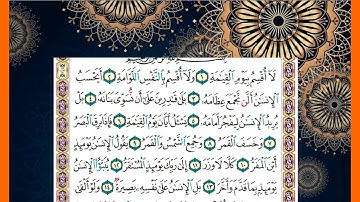 لَآ أُقْسِمُ بِيَوْمِ ٱلْقِيَٰمَةِ ١ وَلَآ أُقْسِمُ بِٱلنَّفْسِ ٱللَّوَّامَةِ ٢ أَيَحْسَبُ
ٱلْإِنسَٰنُ أَلَّن نَّجْمَعَ عِظَامَهُۥ ٣ بَلَىٰ قَٰدِرِينَ عَلَىٰٓ أَن نُّسَوِّىَ بَنَانَهُۥ ٤ بَلْ
يُرِيدُ ٱلْإِنسَٰنُ لِيَفْجُرَ أَمَامَهُۥ ٥ يَسْـَٔلُ أَيَّانَ يَوْمُ ٱلْقِيَٰمَةِ ٦ فَإِذَا بَرِقَ ٱلْبَصَرُ
٧ وَخَسَفَ ٱلْقَمَرُ ٨ وَجُمِعَ ٱلشَّمْسُ وَٱلْقَمَرُ ٩ يَقُولُ ٱلْإِنسَٰنُ يَوْمَئِذٍ
أَيْنَ ٱلْمَفَرُّ ١٠ كَلَّا لَا وَزَرَ ١١ إِلَىٰ رَبِّكَ يَوْمَئِذٍ ٱلْمُسْتَقَرُّ ١٢ يُنَبَّؤُا۟ ٱلْإِنسَٰنُ
يَوْمَئِذٍۭ بِمَا قَدَّمَ وَأَخَّرَ ١٣ بَلِ ٱلْإِنسَٰنُ عَلَىٰ نَفْسِهِۦ بَصِيرَةٌ ١٤ وَلَوْ أَلْقَىٰ